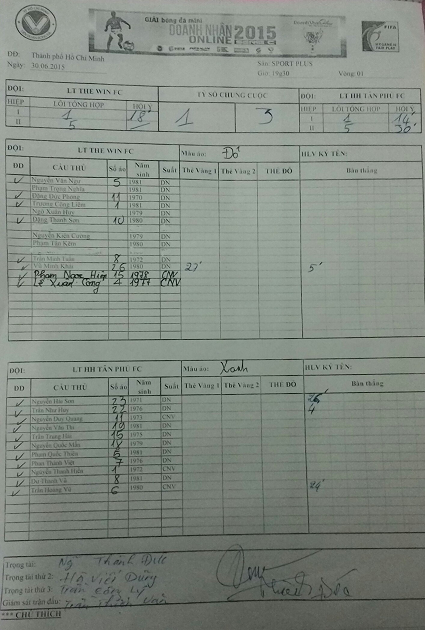 GIẢI bóng đá mini
DOANH NHÂN 2015
ONLINE
FIFA
ĐĐ: Thành phố Hồ Chí Minh
Ngày: 30.06.2015
Sân: SPORT PLUS
Giờ: 19g30 Vòng 01
ĐỘI: LT THE WIN FC TỶ SỐ CHUNG CUỘC ĐỘI: LT HH TÂN PHU FC
HIỆP LỖI TỔNG HỢP HỘI Ý HIỆP LỖI TỔNG HỢP HỘI Ý
I 1 18' 1 3 I 1 14'
II 5 II 5 30'
ĐỘI: LT THE WIN FC Màu áo: Đỏ HLV KÝ TÊN:
DD CẦU THỦ Số áo Năm sinh Suất Thẻ Vàng 1 Thẻ Vàng 2 THẺ ĐỎ Bàn thắng
Nguyễn Văn Ngọ 5 1981 DN
Phạm Trọng Nghĩa 1981 DN
Đặng Đức Phong 11 1970 DN
Trương Công Liêm 1 1981 DN
Ngô Xuân Huy 1979 DN
Đặng Thanh Sơn 10 1980 DN
Nguyễn Kiên Cường 1979 DN
Phạm Tấn Kiêm 1980 DN
Trần Minh Tuấn 8 1972 DN
Vũ Minh Khải 26 1980 DN 27' 5'
Phạm Ngọc Hiệp 15 1978 CNV
Lê Xuân Công 4 1977 CNV
ĐỘI: LT HH TÂN PHU FC Màu áo: Xanh HLV KÝ TÊN:
DD CẦU THỦ Số áo Năm sinh Suất Thẻ Vàng 1 Thẻ Vàng 2 THẺ ĐỎ Bàn thắng
Nguyễn Hải Sơn 23 1971 DN
Trần Như Huy 22 1976 DN 4
Nguyễn Duy Quang 11 1973 CNV
Nguyễn Văn Thi 19 1981 DN
Trần Trung Hải 15 1975 DN
Nguyễn Quốc Mẫn 18 1979 DN
Phạm Quốc Thiên 5 1981 DN
Phan Thanh Việt 7 1976 DN
Nguyễn Thanh Hiền 1 1972 CNV
Dư Thanh Vũ 8 1981 DN
Trần Hoàng Vũ 6 1980 CNV 24'
Trọng tài: Ng Thành Đức
Trọng tài thứ 2: Hồ Viết Dũng
Trọng tài thứ 3: Trần
Giám sát trận đấu: Trần
*** CHÚ THÍCH